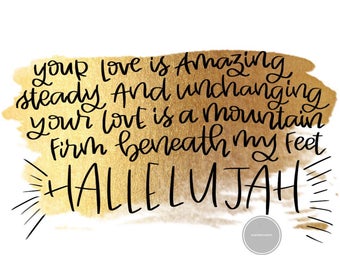 your Love is Amazing
steady And unchanging
your Love is a mountain
Firm beneath my Feet
HALLELUJAH